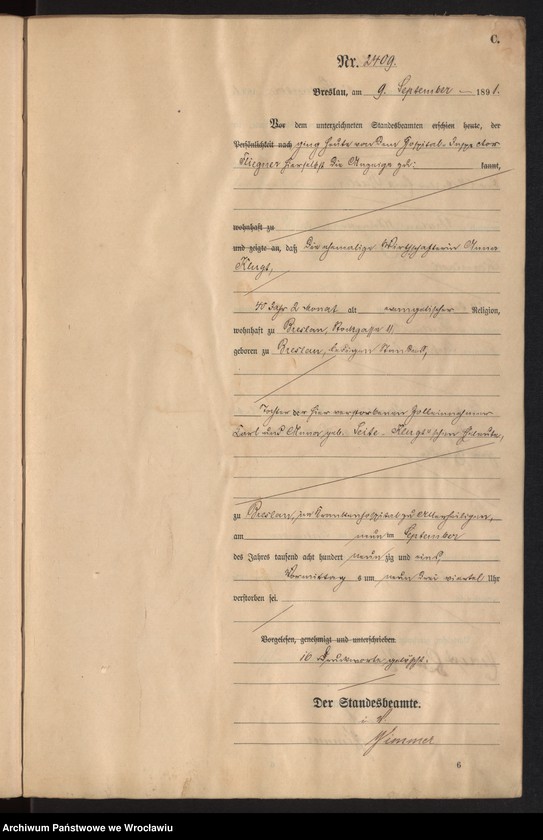 C.
Nr. 2409.
Breslau, am 9. September 1891.
Vor dem unterzeichneten Standesbeamten erschien heute, der
Persönlichkeit nach ging heute von dem Hospital-Inspector
hierselbst die Anzeige kannt,
wohnhaft zu
und zeigte an, daß die ehemalige Wirthschafterin Anna
Klugt,
40 Jahr 2 Monat alt evangelischer Religion,
wohnhaft zu Breslau, 11
geboren zu Breslau, ledigen Standes,
Tochter der hier verstorbenen Zolleinnehmer
Carl und Anna geb. Seite- Klugt'schen Eheleute,
zu Breslau, im Krankenhospital zu Allerheiligen,
am neun ten September
des Jahres tausend acht hundert neun zig und eins,
Vormittag s um neun drei viertel Uhr
verstorben sei.
Vorgelesen, genehmigt und unterschrieben.
10 Druckworte gelöscht.
Der Standesbeamte.
i. V.
6
Archiwum Państwowe we Wrocławiu